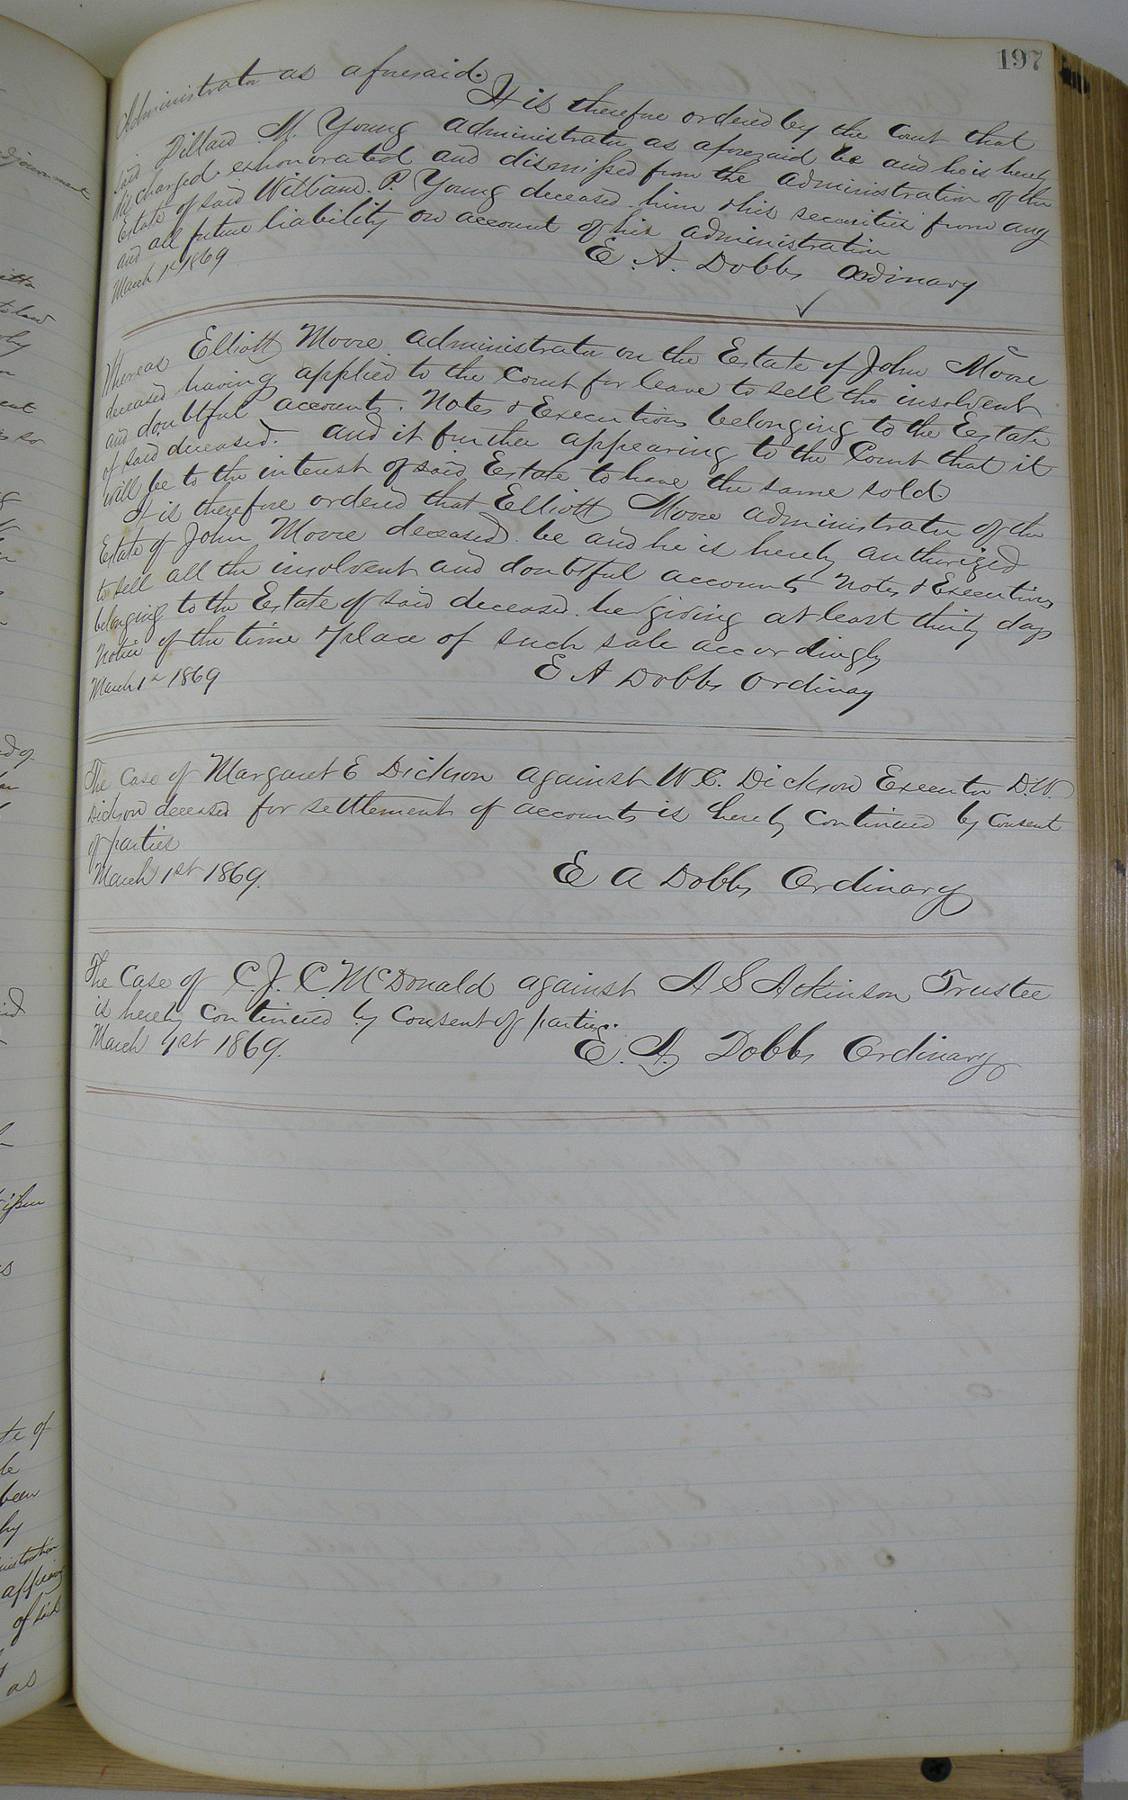 197
Administrator as aforesaid.
It is therefore ordered by the Court that
said Dillard M. Young administrator as aforesaid be and he is hereby
discharged exhonorated and dismissed from the administration of the
Estate of said William. P. Young deceased. him & his securities from any
and all future liability on account of his administration
March 1st 1869
E. A. Dobbs Ordinary
Whereas Elliott Moore administrator on the Estate of John Moore
deceased having applied to the Court for leave to sell the insolvent
and doubtful accounts. Notes & Executions belonging to the Estate
of said deceased. and it further appearing to the Court that it
will be to the interest of said Estate to have the same sold
It is therefore ordered that Elliott Moore administrator of the
Estate of John Moore deceased. be and he is hereby authorized
to sell all the insolvent and doubtful accounts Notes & Executions
belonging to the Estate of said deceased. he giving at least thirty days
Notice of the time & place of such sale accordingly
March 1st 1869
E A Dobbs Ordinary
The Case of Margaret E Dickson against W. C. Dickson Executor D.W.
Dickson deceased for settlement of accounts is hereby continued by consent
of parties
March 1st 1869.
E A Dobbs Ordinary
The Case of C. J. C. McDonald against A S Atkinson Trustee
is hereby continued by Consent of parties.
March 1st 1869.
E. A. Dobbs Ordinary